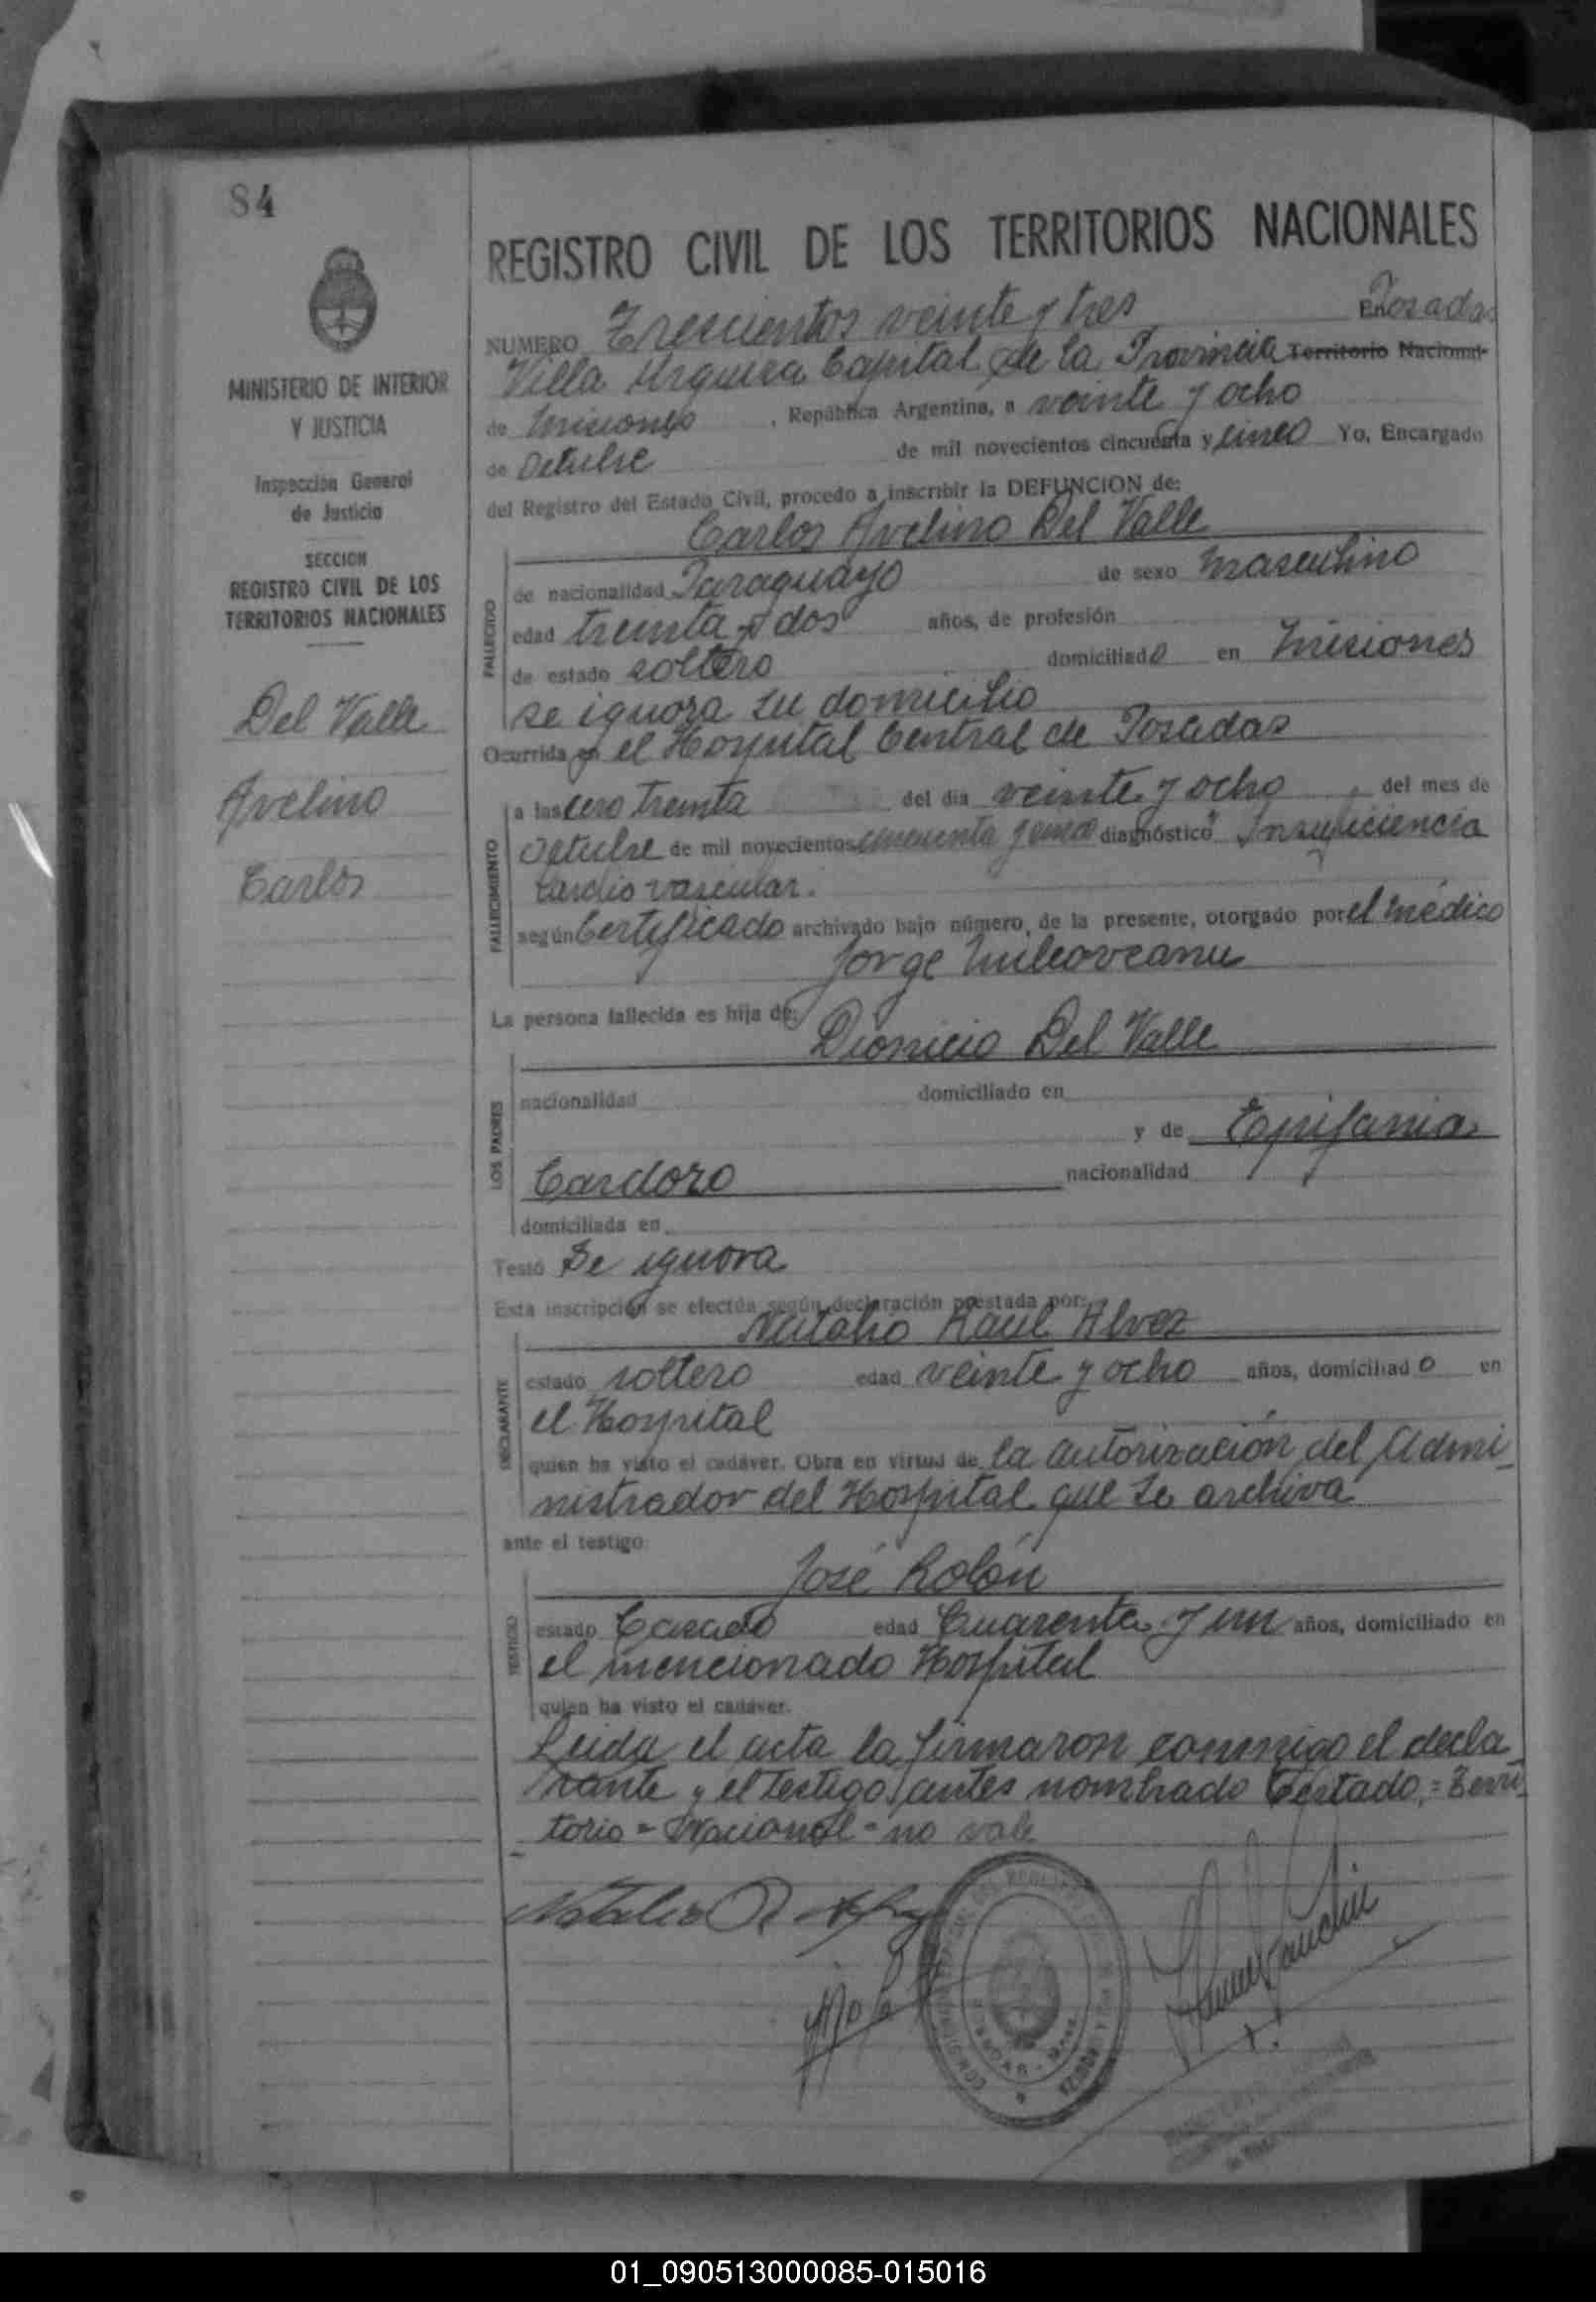 84
MINISTERIO DE INTERIOR
Y JUSTICIA
Inspección General
de Justicia
SECCION
REGISTRO CIVIL DE LOS
TERRITORIOS NACIONALES
Del Valle
Avelino
Carlos
REGISTRO CIVIL DE LOS TERRITORIOS NACIONALES
NUMERO Trescientos veinte y tres En Posadas
Villa Urquiza Capital de la Provincia Territorio Nacional
de Misiones, República Argentina, a veinte y ocho
de Octubre de mil novecientos cincuenta y cinco Yo, Encargado
del Registro del Estado Civil, procedo a inscribir la DEFUNCION de:
Carlos Avelino Del Valle
FALLECIDO
de nacionalidad Paraguayo de sexo masculino
edad treinta y dos años, de profesión
de estado soltero domiciliado en Misiones
se ignora su domicilio
Ocurrida en el Hospital Central de Posadas
FALLECIMIENTO
a las cero treinta del día veinte y ocho, del mes de
Octubre de mil novecientos cincuenta y cinco diagnóstico Insuficiencia
cardio vascular.
según Certificado archivado bajo número, de la presente, otorgado por el médico
Jorge Milcoveanu
La persona fallecida es hija de:
Dionicio Del Valle
LOS PADRES
nacionalidad domiciliado en
y de Epifania
Cardozo nacionalidad
domiciliada en
Testó Se ignora
Esta inscripción se efectúa según declaración prestada por:
Natalio Raul Alvez
DECLARANTE
estado soltero edad veinte y ocho años, domiciliado en
el Hospital
quien ha visto el cadáver. Obra en virtud de la autorización del Admi-
nistrador del Hospital que se archiva
ante el testigo:
José Rolón
TESTIGO
estado Casado edad Cuarenta y un años, domiciliado en
el mencionado Hospital
quien ha visto el cadáver.
Leida el acta la firmaron conmigo el decla-
rante y el testigo antes nombrado Testado = Terri-
torio = Nacional = no vale
01_090513000085-015016